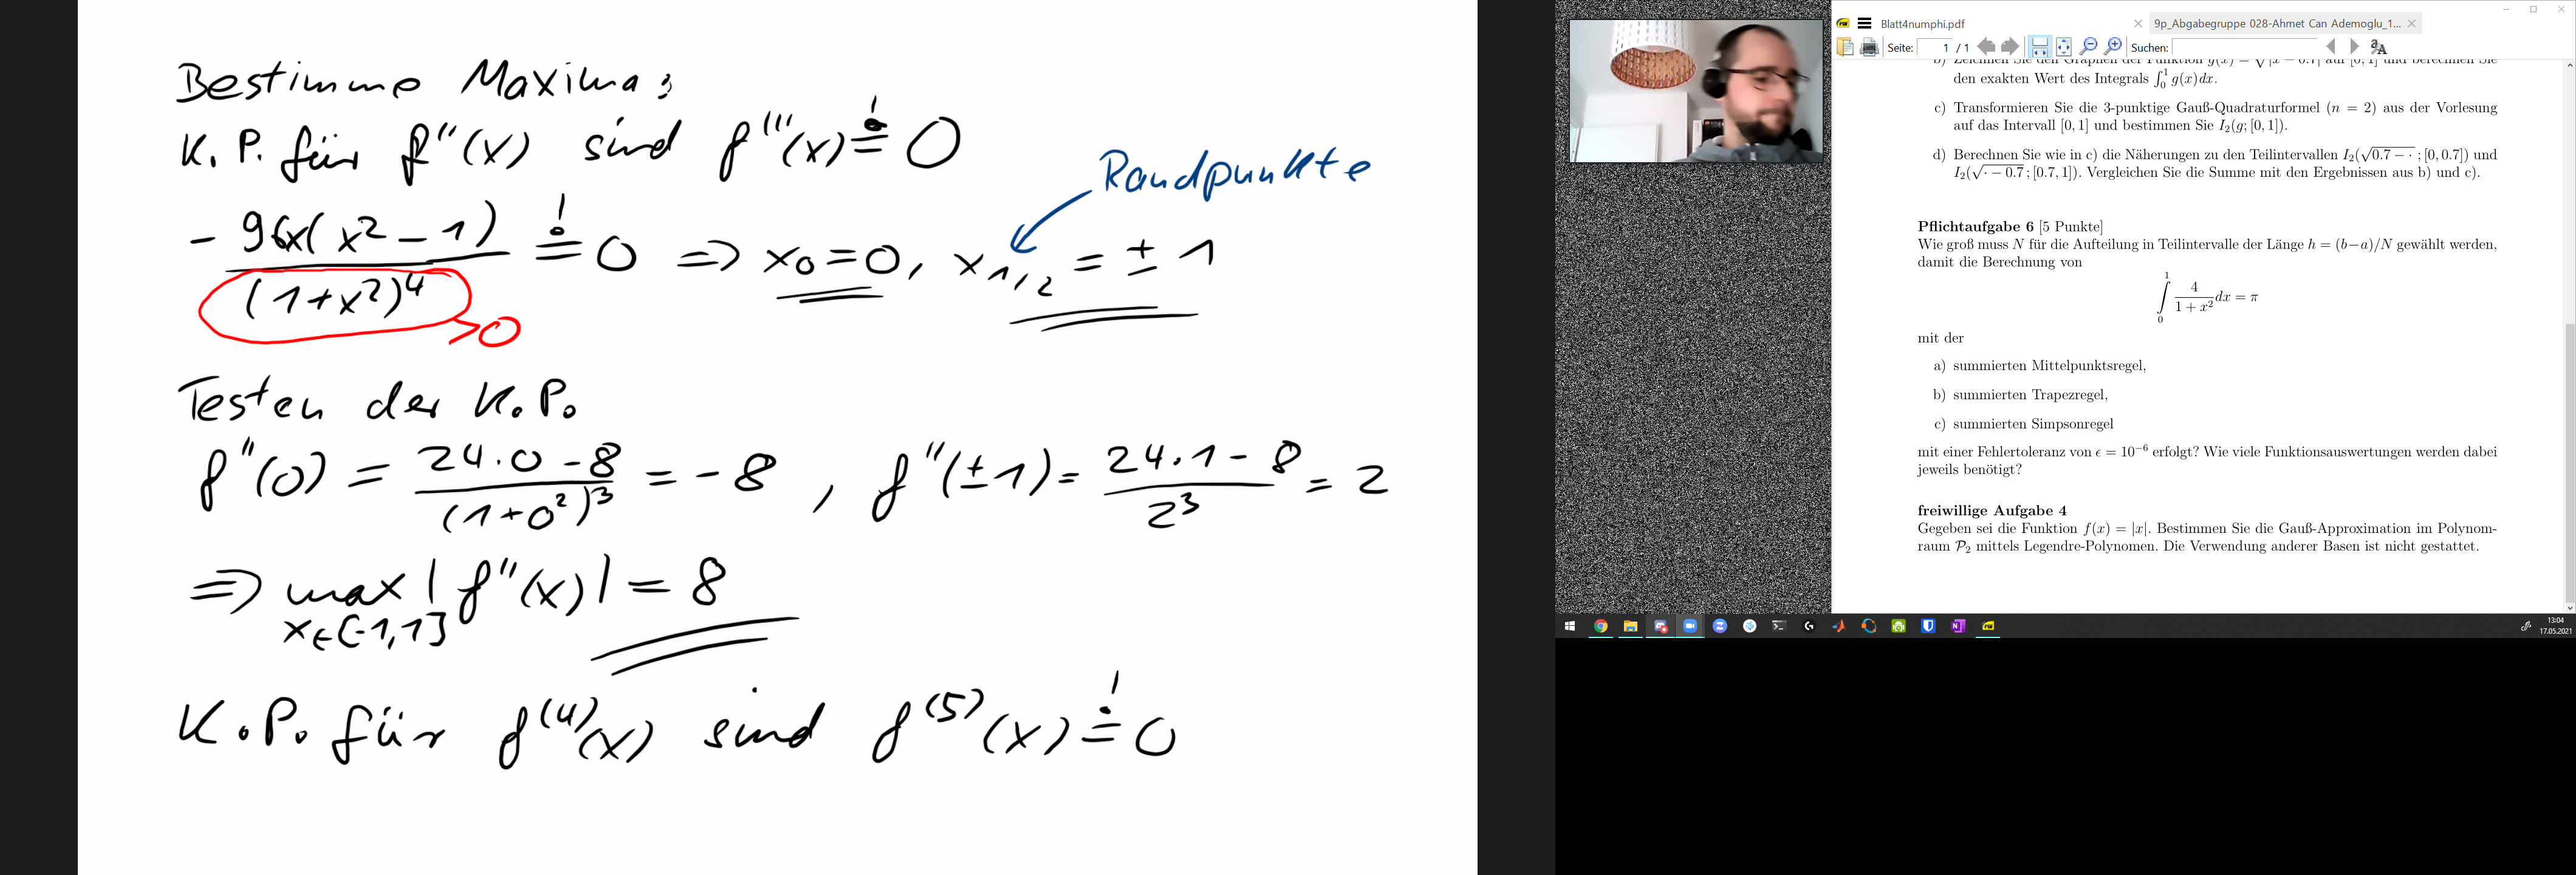 Bestimme Maxima:
K.P. für f''(x) sind f'''(x) != 0
Randpunkte
- 96x(x² - 1) / (1+x²)⁴ != 0 => x₀ = 0, x₁/₂ = ± 1
> 0
Testen der K.P.
f''(0) = (24·0 - 8) / (1+0²)³ = -8 , f''(±1) = (24·1 - 8) / 2³ = 2
=> max |f''(x)| = 8
x∈[-1,1]
K.P. für f⁽⁴⁾(x) sind f⁽⁵⁾(x) != 0
Blatt4numphi.pdf
9p_Abgabegruppe 028-Ahmet Can Ademoglu_1...
Seite: 1 / 1 Suchen:
b) Zeichnen Sie den Graphen der Funktion g(x) = √|x − 0.7| auf [0, 1] und berechnen Sie
den exakten Wert des Integrals ∫₀¹ g(x)dx.
c) Transformieren Sie die 3-punktige Gauß-Quadraturformel (n = 2) aus der Vorlesung
auf das Intervall [0, 1] und bestimmen Sie I₂(g; [0, 1]).
d) Berechnen Sie wie in c) die Näherungen zu den Teilintervallen I₂(√0.7 − · ; [0, 0.7]) und
I₂(√· − 0.7 ; [0.7, 1]). Vergleichen Sie die Summe mit den Ergebnissen aus b) und c).
Pflichtaufgabe 6 [5 Punkte]
Wie groß muss N für die Aufteilung in Teilintervalle der Länge h = (b−a)/N gewählt werden,
damit die Berechnung von
∫₀¹ 4 / (1 + x²) dx = π
mit der
a) summierten Mittelpunktsregel,
b) summierten Trapezregel,
c) summierten Simpsonregel
mit einer Fehlertoleranz von ϵ = 10⁻⁶ erfolgt? Wie viele Funktionsauswertungen werden dabei
jeweils benötigt?
freiwillige Aufgabe 4
Gegeben sei die Funktion f(x) = |x|. Bestimmen Sie die Gauß-Approximation im Polynom-
raum P₂ mittels Legendre-Polynomen. Die Verwendung anderer Basen ist nicht gestattet.
13:04
17.05.2021